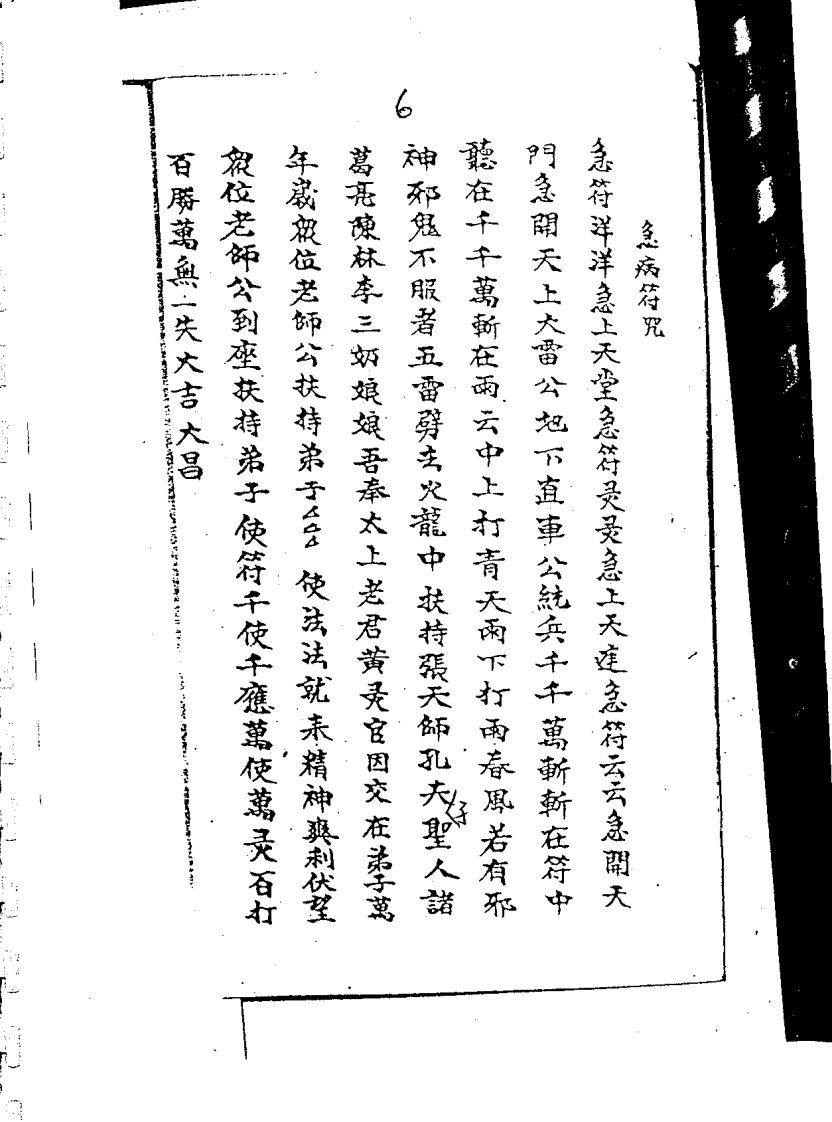 6
急病符咒
急符洋洋急上天堂急符灵灵急上天廷急符云云急開天
門急開天上大雷公地下直車公統兵千千萬斬斬在符中
聽在千千萬斬在雨云中上打青天雨下打雨春風若有邪
神邪鬼不服者五雷劈去火龍中扶持張天師孔夫仔聖人諸
葛亮陳林李三奶娘娘吾奉太上老君黄灵官因交在弟子萬
年歲眾位老師公扶持弟子△△△使法法就来精神爽利伏望
眾位老師公到座扶持弟子使符千使千應萬使萬灵百打
百勝萬無一失大吉大昌